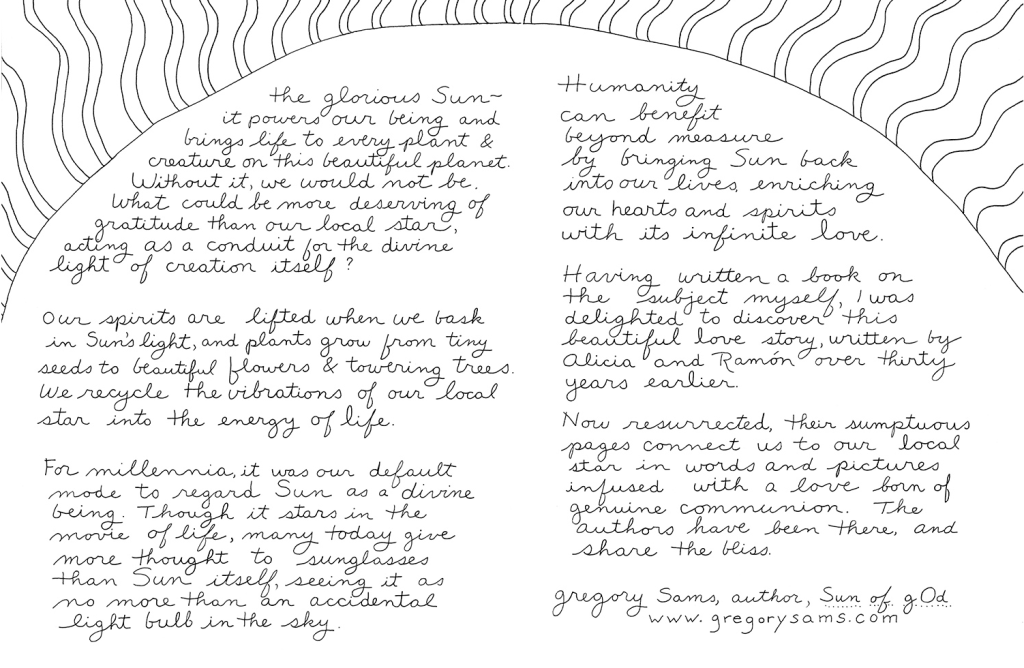 the glorious Sun~
it powers our being and
brings life to every plant &
creature on this beautiful planet.
Without it, we would not be.
What could be more deserving of
gratitude than our local star,
acting as a conduit for the divine
light of creation itself?
Our spirits are lifted when we bask
in Sun's light, and plants grow from tiny
seeds to beautiful flowers & towering trees.
We recycle the vibrations of our local
star into the energy of life.
For millennia, it was our default
mode to regard Sun as a divine
being. Though it stars in the
movie of life, many today give
more thought to sunglasses
than Sun itself, seeing it as
no more than an accidental
light bulb in the sky.
Humanity
can benefit
beyond measure
by bringing Sun back
into our lives, enriching
our hearts and spirits
with its infinite love.
Having written a book on
the subject myself, I was
delighted to discover this
beautiful love story, written by
Alicia and Ramón over thirty
years earlier.
Now resurrected, their sumptuous
pages connect us to our local
star in words and pictures
infused with a love born of
genuine communion. The
authors have been there, and
share the bliss.
gregory Sams, author, Sun of gOd
www.gregorysams.com